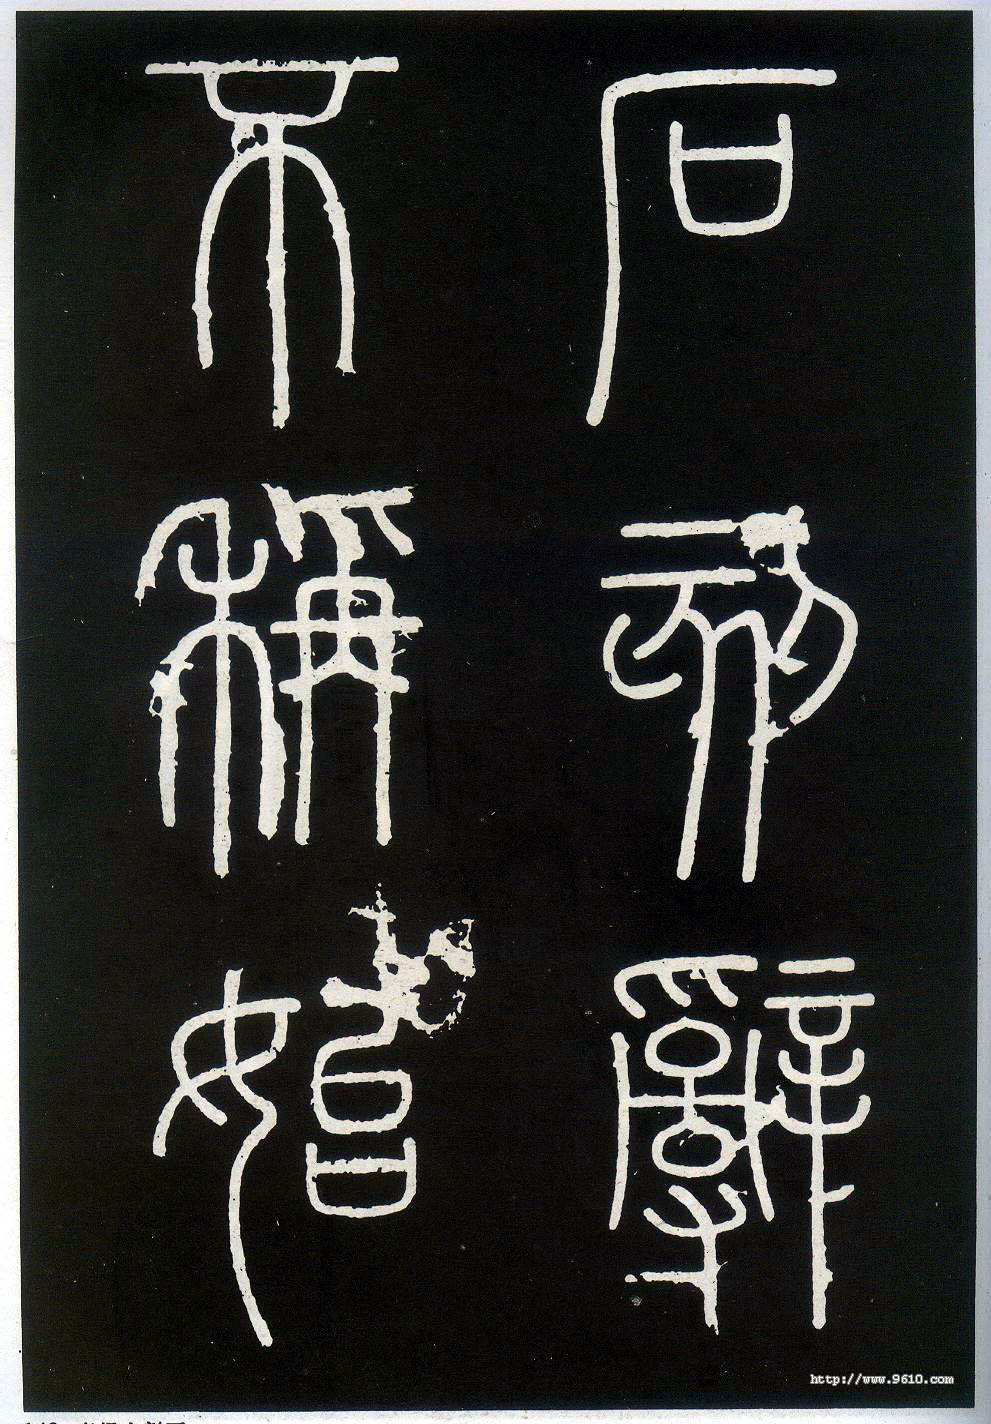 石刻辭
不稱始
http://www.9610.com